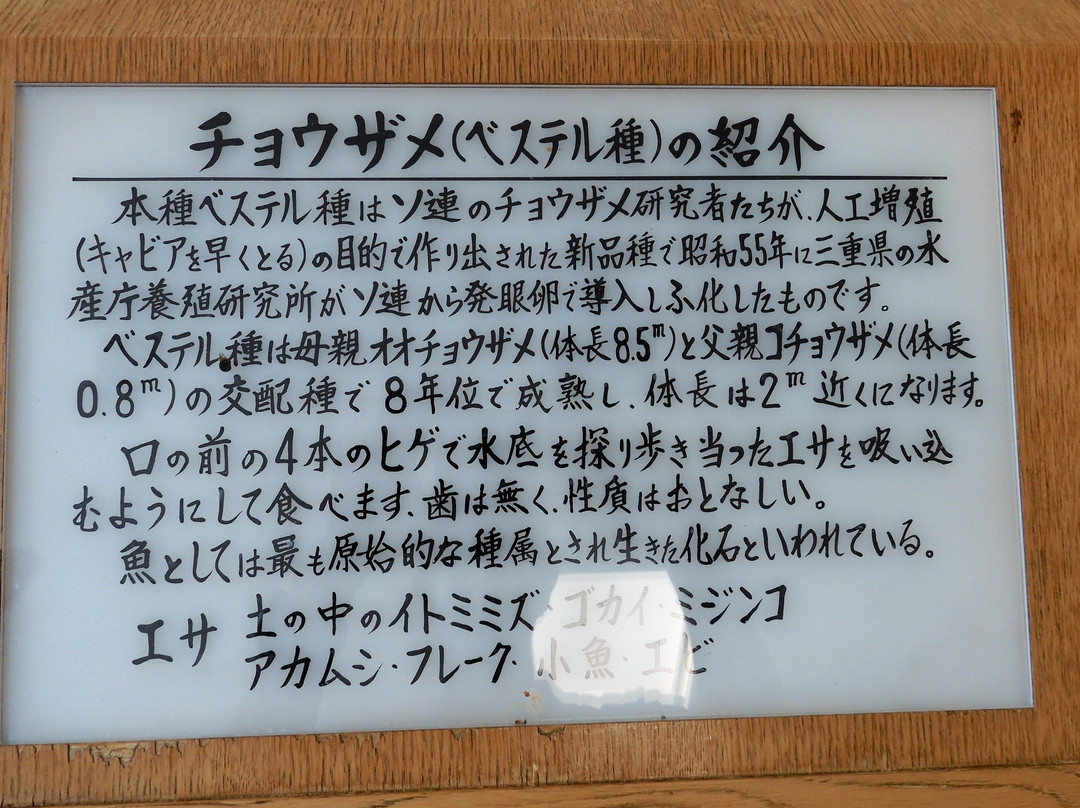 チョウザメ(ベステル種)の紹介
本種ベステル種はソ連のチョウザメ研究者たちが、人工増殖
(キャビアを早くとる)の目的で作り出された新品種で昭和55年に三重県の水
産庁養殖研究所がソ連から発眼卵で導入しふ化したものです。
ベステル種は母親オオチョウザメ(体長8.5m)と父親コチョウザメ(体長
0.8m)の交配種で8年位で成熟し、体長は2m近くになります。
口の前の4本のヒゲで水底を探り歩き当ったエサを吸い込
むようにして食べます、歯は無く、性質はおとなしい。
魚としては最も原始的な種属とされ生きた化石といわれている。
エサ 土の中のイトミミズ・ゴカイ・ミジンコ
アカムシ・フレーク・小魚・エビ